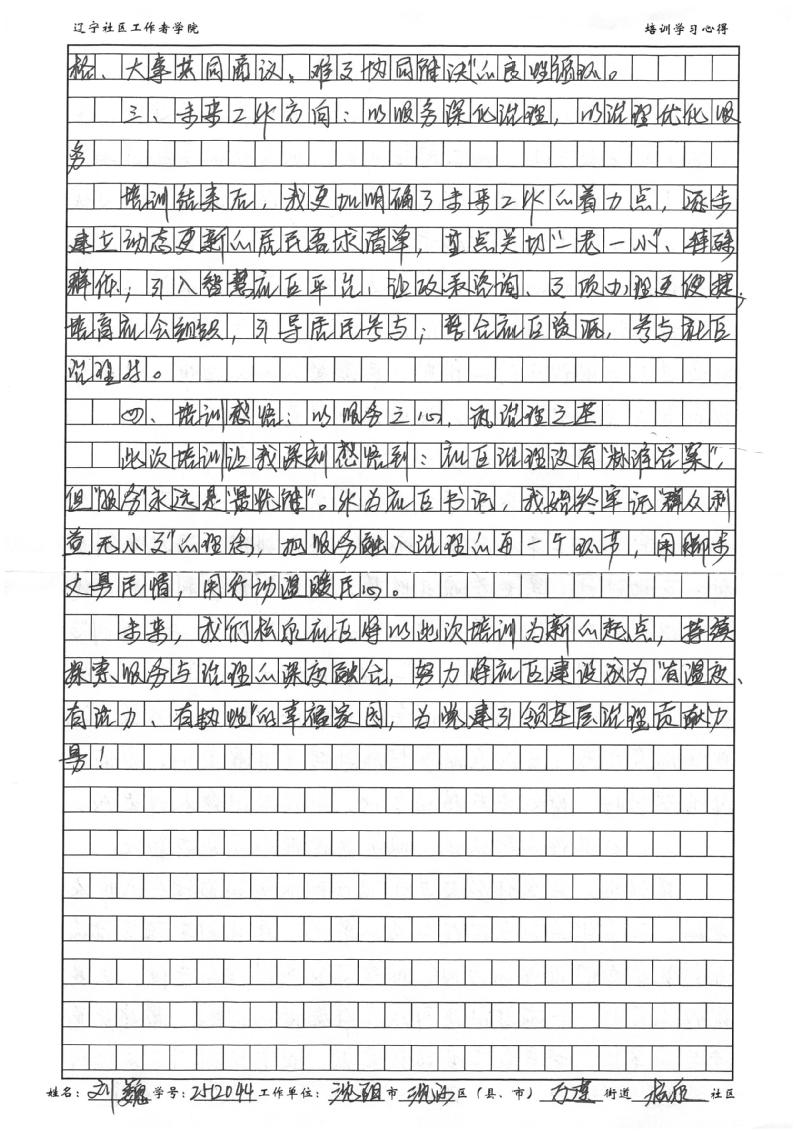 辽宁社区工作者学院 培训学习心得
格、大事共同商议、难文协同解决"的良性循环。
三、未来工作方向：以服务深化治理，以治理优化服
务
培训结束后，我更加明确了未来工作的着力点，逐步
建立动态更新的居民需求清单，重点关切"一老一小"、特殊
群体；引入智慧社区平台，让政策咨询、事项办理更便捷；
培育社会组织，引导居民参与；整合社区资源，参与社区
治理好。
四、培训感悟：以服务之心，筑治理之基
此次培训让我深刻感悟到：社区治理没有"标准答案"，
但"服务"永远是"最优解"。作为社区书记，我始终牢记"群众利
益无小事"的理念，把服务融入治理的每一个环节，用脚步
丈量民情，用行动温暖民心。
未来，我们社区将以此次培训为新的起点，持续
探索服务与治理的深度融合，努力将社区建设成为"有温度、
有活力、有韧性"的幸福家园，为党建引领基层治理贡献力
量！
姓名：刘巍 学号：252044 工作单位：沈阳 市 沈河 区（县、市） 街道 社区